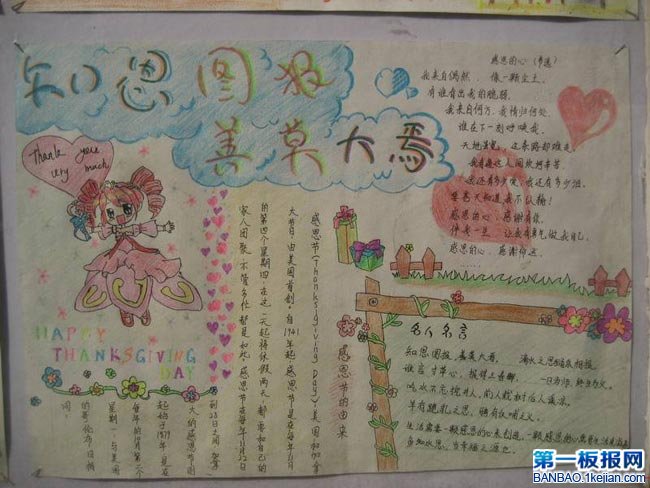 知恩图报
善莫大焉
Thank you
very much
HAPPY
THANKSGIVING
DAY
感恩的心(节选)
我来自偶然,像一颗尘土,
有谁看出我的脆弱,
我来自何方,我情归何处,
谁在下一刻呼唤我,
天地虽宽,这条路却难走,
我看遍这人间坎坷辛苦,
我还有多少爱,我还有多少泪,
感恩的心,感谢有你,
伴我一生,让我有勇气做我自己,
感恩的心,感谢命运
感恩节的由来
感恩节(Thanksgiving Day)美国加拿
大节日,由美国首创,自1941年起,感恩节是在每年11月
的第四个星期四,在这一天起将休假两天,
家人团聚,不管多忙都是如此,感恩节在每年11月22日
到28日之间,加拿
大的感恩节则
起始于1879年,是在
每年的10月第二个
星期一,与美国
的哥伦布日相
同。
名人名言
知恩图报,善莫大焉。 滴水之恩,涌泉相报。
谁言寸草心,报得三春晖。 一日为师,终身为父。
吃水不忘挖井人,前人栽树后人乘凉。
羊有跪乳之恩,鸦有反哺之义。
第一板报网
BANBAO.1kejian.com